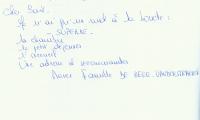 Cher David,
Je n'ai qu'un mot à la bouche :
SUPERBE.
la chambre
le petit déjeuner
l'accueil
Une adresse à recommander
Famille DE